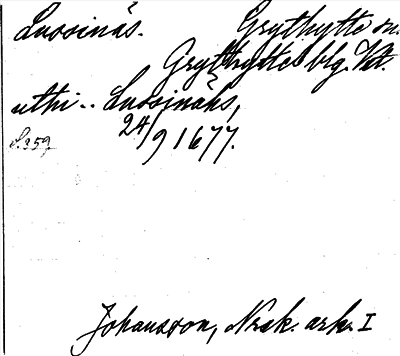 Lussinäs. Grythytte sn.
Grythytte blg. Vstm.
uthi.. Lussinähs,
24/9 1677.
S. 259
Johansson, Norsk. ark. I